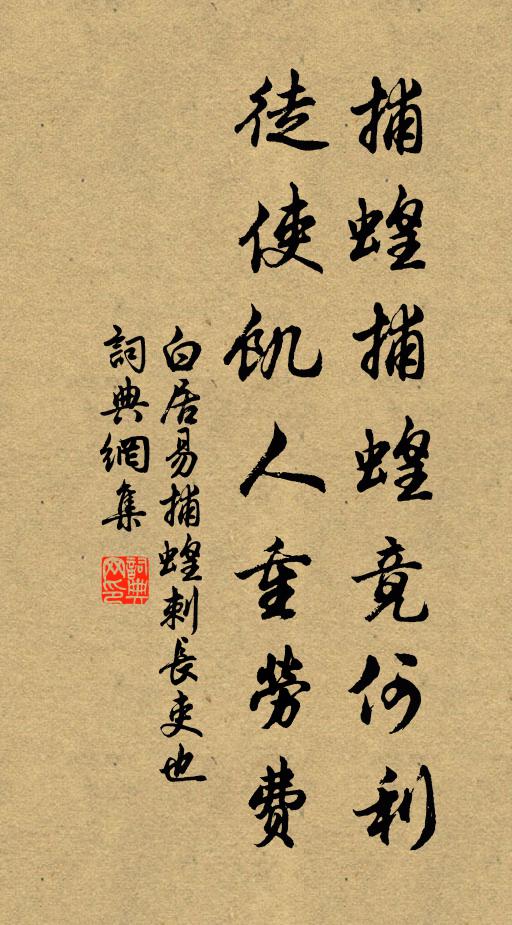 捕蝗捕蝗竟何利
徒使飢人重勞費
白居易捕蝗刺長吏也
詞典網集
詞典网印